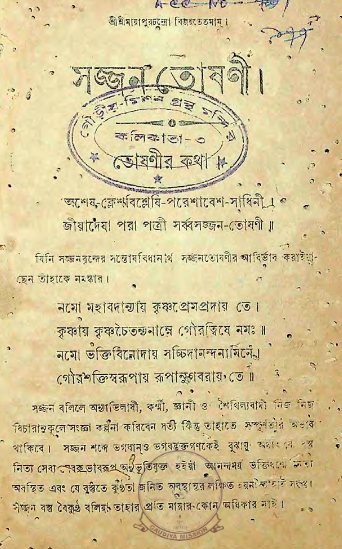 শ্রীশ্রীমায়াপুরচন্দ্রো বিজয়তেতমাম্ ।
সজ্জনতোষণী ।
গৌড়ীয়-মিশন গ্রন্থ মন্দির
কলিকাতা-৩
তোষণীর কথা
অশেষ-ক্লেশবিশ্লেষি-পরেশাবেশ-সাধিনী ।
জীয়াদেষা পরা পাত্রী সর্ব্বসজ্জন-তোষণী ॥
যিনি সজ্জনবৃন্দের সন্তোষবিধানার্থ সজ্জনতোষণীর আবির্ভাব করাইয়া-
ছেন তাঁহাকে নমস্কার।
নমো মহাবদান্যায় কৃষ্ণপ্রেমপ্রদায় তে ।
কৃষ্ণায় কৃষ্ণচৈতন্যনাম্নে গৌরত্বিষে নমঃ ॥
নমো ভক্তিবিনোদায় সচ্চিদানন্দনামিনে ।
গৌরশক্তিস্বরূপায় রূপানুগবরায় তে ॥
সজ্জন বলিলে অন্যাভিলাষী, কর্ম্মী, জ্ঞানী ও শৈথিল্যবাদী নিজ নিজ
বিচারানুকূলে সংজ্ঞা কল্পনা করিবেন সত্য কিন্তু তাহাতে সম্পূর্ণতার অভাব
থাকিবে। সজ্জন শব্দে ভগবান্ ও ভগবদ্ভক্তগণকেই বুঝায়। যে বস্তু
নিত্য সেবা হইয়া আনন্দময়
অবস্থিত এবং যে বস্তুতে কুণ্ঠতা জনিত অবস্থান্তর লক্ষিত হয় না তাহাই
সজ্জন বস্তু বৈকুণ্ঠ বলিয়া তাহার প্রতি মায়ার কোন অধিকার নাই।